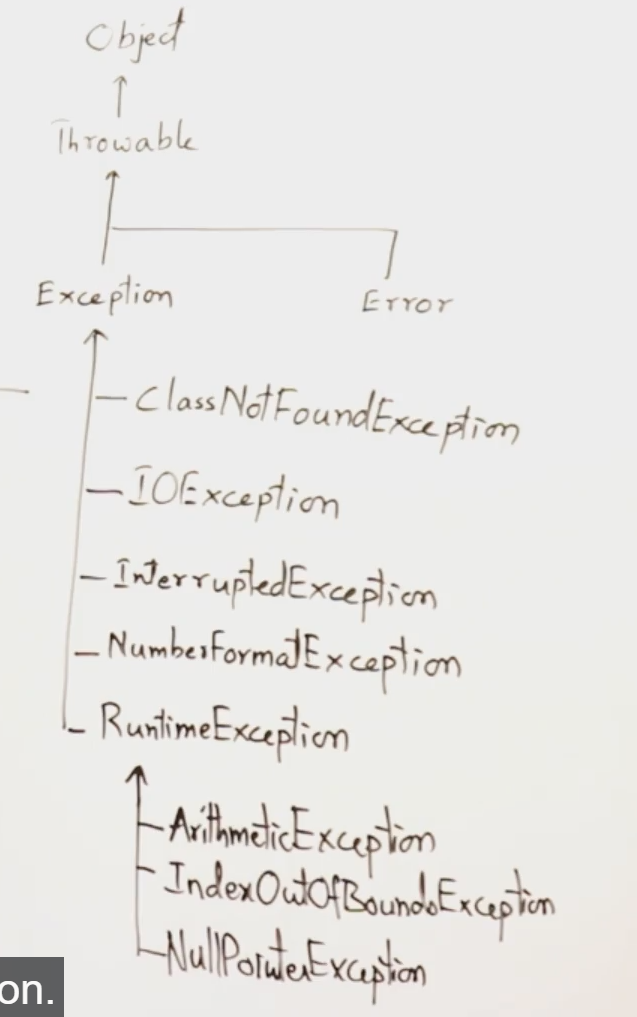 Object
Throwable
Exception Error
ClassNotFoundException
IOException
InterruptedException
NumberFormatException
RuntimeException
ArithmeticException
IndexOutOfBoundsException
NullPointerException
on.